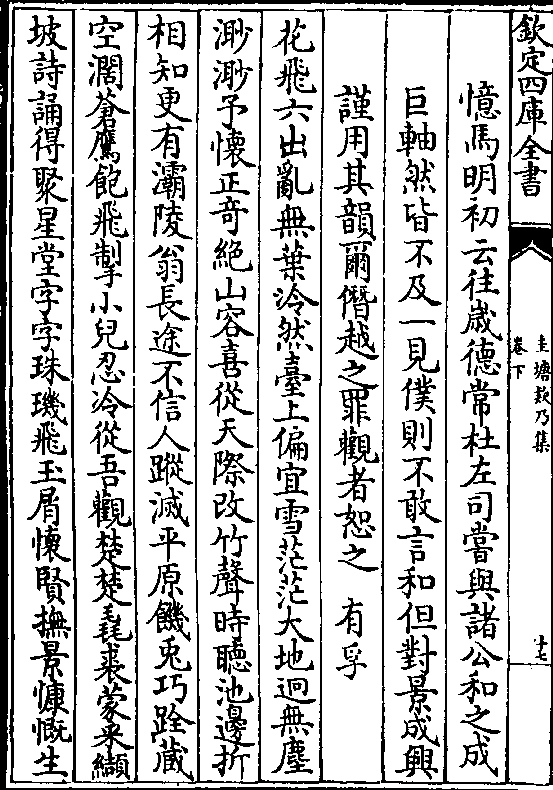 欽定四庫全書
圭塘欸乃集
卷下
十七
憶馬明初云往歲德常杜左司嘗與諸公和之成
巨軸然皆不及一見僕則不敢言和但對景成興
謹用其韻爾僭越之罪觀者恕之 有孚
花飛六出亂無葉泠然臺上偏宜雪茫茫大地迥無塵
渺渺予懷正奇絶山容喜從天際改竹聲時聽池邊折
相知更有灞陵翁長途不信人蹤滅平原饑兎巧跧蔵
空濶蒼鷹飽飛掣小兒忍冷從吾觀楚楚毳裘蒙采纈
坡詩誦得聚星堂字字珠璣飛玉屑懷賢撫景慷慨生